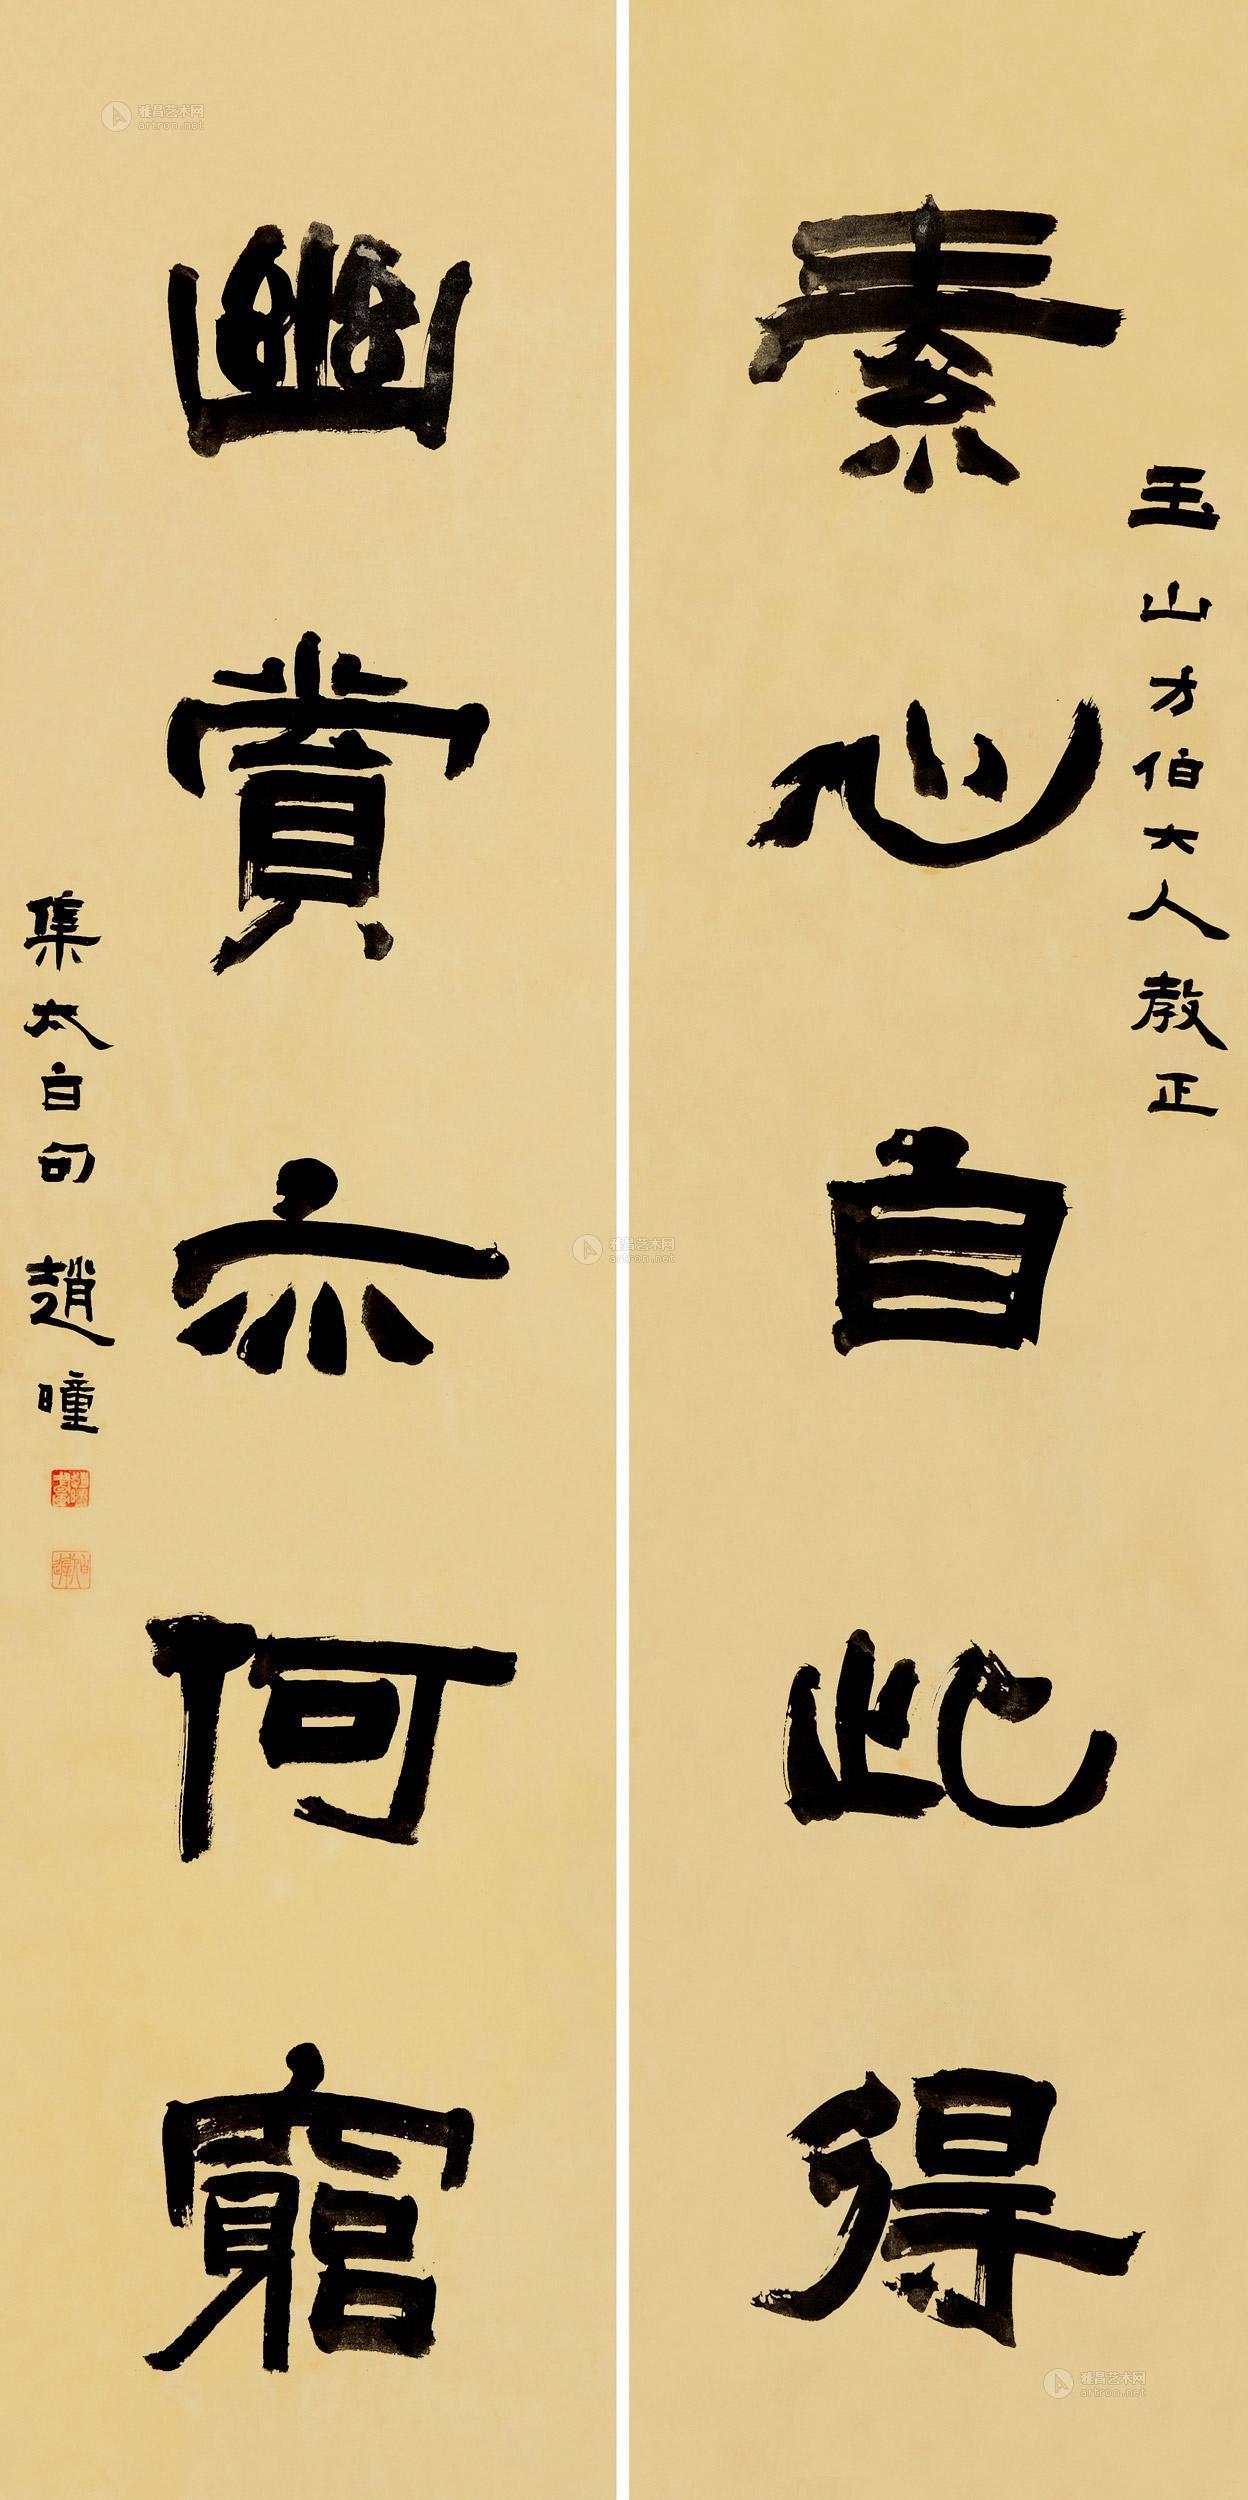 玉山方伯大人教正
素心自此得
幽賞亦何窮
集太白句 趙曈
雅昌艺术网
artron.net
雅昌艺术网
artron.net
雅昌艺术网
artron.net